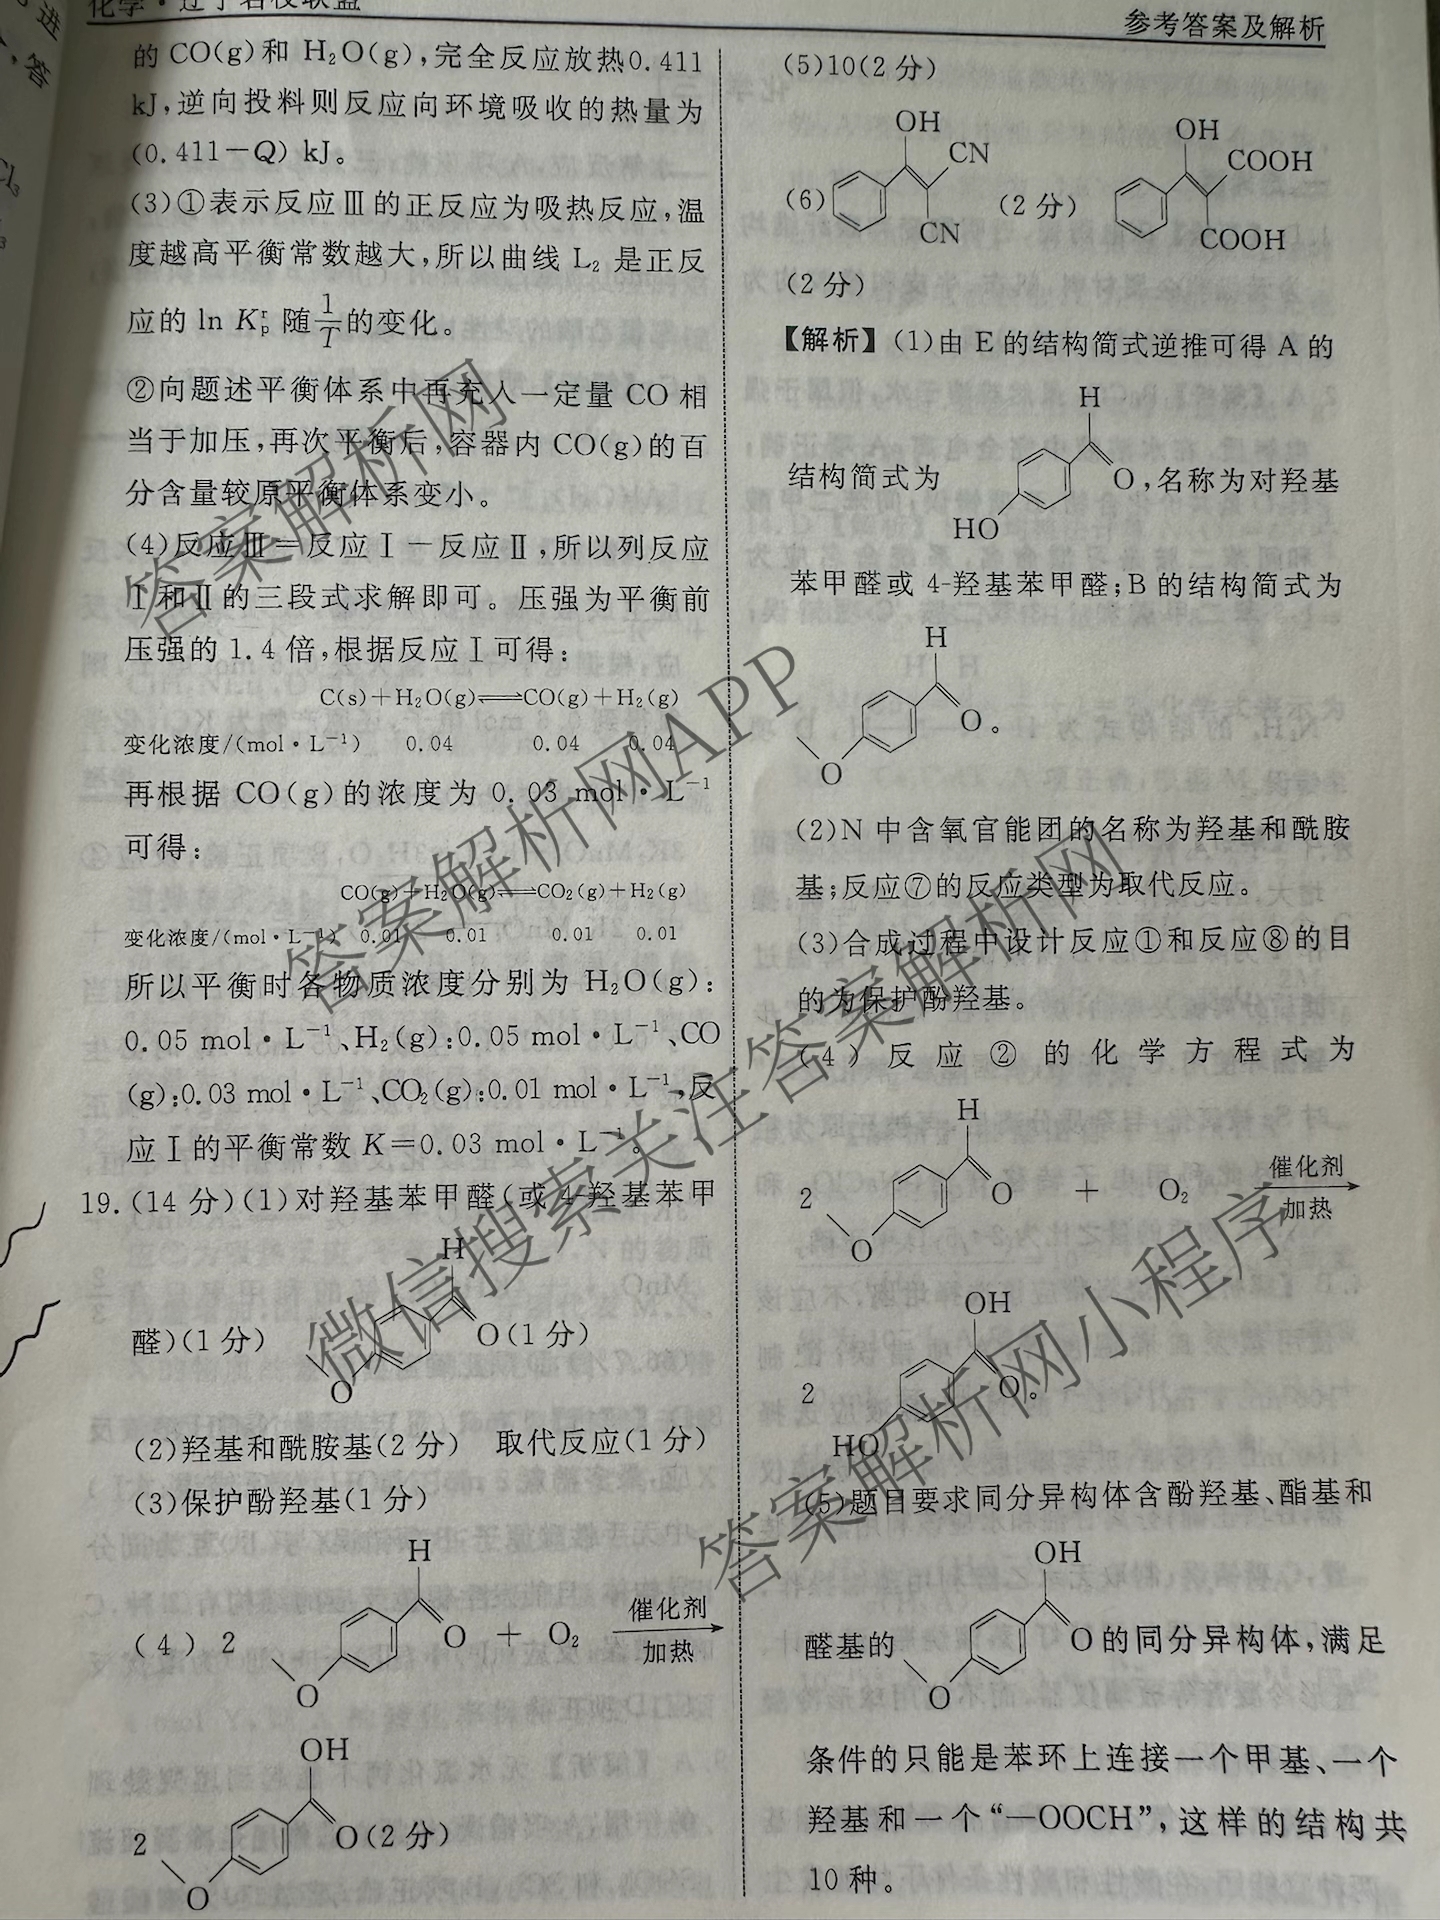 化学·辽宁名校联盟
参考答案及解析
的 CO(g)和 H₂O(g),完全反应放热0.411
kJ,逆向投料则反应向环境吸收的热量为
(0.411－Q) kJ。
(3)①表示反应Ⅲ的正反应为吸热反应,温
度越高平衡常数越大,所以曲线 L₂ 是正反
应的 ln Kₚʳ 随 1/T 的变化。
②向题述平衡体系中再充入一定量 CO 相
当于加压,再次平衡后,容器内 CO(g)的百
分含量较原平衡体系变小。
(4)反应Ⅲ＝反应Ⅰ－反应Ⅱ,所以列反应
Ⅰ和Ⅱ的三段式求解即可。压强为平衡前
压强的 1.4 倍,根据反应Ⅰ可得:
C(s)＋H₂O(g)⇌CO(g)＋H₂(g)
变化浓度/(mol·L⁻¹) 0.04 0.04 0.04
再根据 CO(g)的浓度为 0.03 mol·L⁻¹
可得:
CO(g)＋H₂O(g)⇌CO₂(g)＋H₂(g)
变化浓度/(mol·L⁻¹) 0.01 0.01 0.01 0.01
所以平衡时各物质浓度分别为 H₂O(g):
0.05 mol·L⁻¹、H₂(g):0.05 mol·L⁻¹、CO
(g):0.03 mol·L⁻¹、CO₂(g):0.01 mol·L⁻¹,反
应Ⅰ的平衡常数 K＝0.03 mol·L⁻¹。
19.(14 分)(1)对羟基苯甲醛(或 4-羟基苯甲
H
醛)(1 分) O(1 分)
O
(2)羟基和酰胺基(2 分) 取代反应(1 分)
(3)保护酚羟基(1 分)
H
(4) 2 O ＋ O₂ 催化剂 加热
O
OH
2 O(2 分)
O
(5)10(2 分)
OH CN OH COOH
(6) (2 分)
CN COOH
(2 分)
【解析】(1)由 E 的结构简式逆推可得 A 的
H
结构简式为 O,名称为对羟基
HO
苯甲醛或 4-羟基苯甲醛;B 的结构简式为
H
O。
O
(2)N 中含氧官能团的名称为羟基和酰胺
基;反应⑦的反应类型为取代反应。
(3)合成过程中设计反应①和反应⑧的目
的为保护酚羟基。
(4)反应②的化学方程式为
H
2 O ＋ O₂ 催化剂 加热
O
OH
2 O。
HO
(5)题目要求同分异构体含酚羟基、酯基和
OH
醛基的 O的同分异构体,满足
O
条件的只能是苯环上连接一个甲基、一个
羟基和一个“—OOCH”,这样的结构共
10 种。
答案解析网
答案解析网APP
微信搜索关注答案解析网
答案解析网小程序